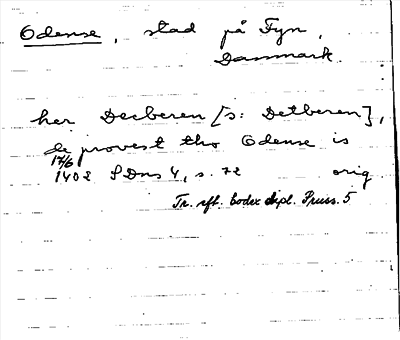 Odense, stad på Fyn,
Danmark.
her Decberen [s: Detberen],
de provest tho Odense is
17/6
1402 SDns 4, s. 72 orig
Tr. eft. Codex dipl. Pruss. 5